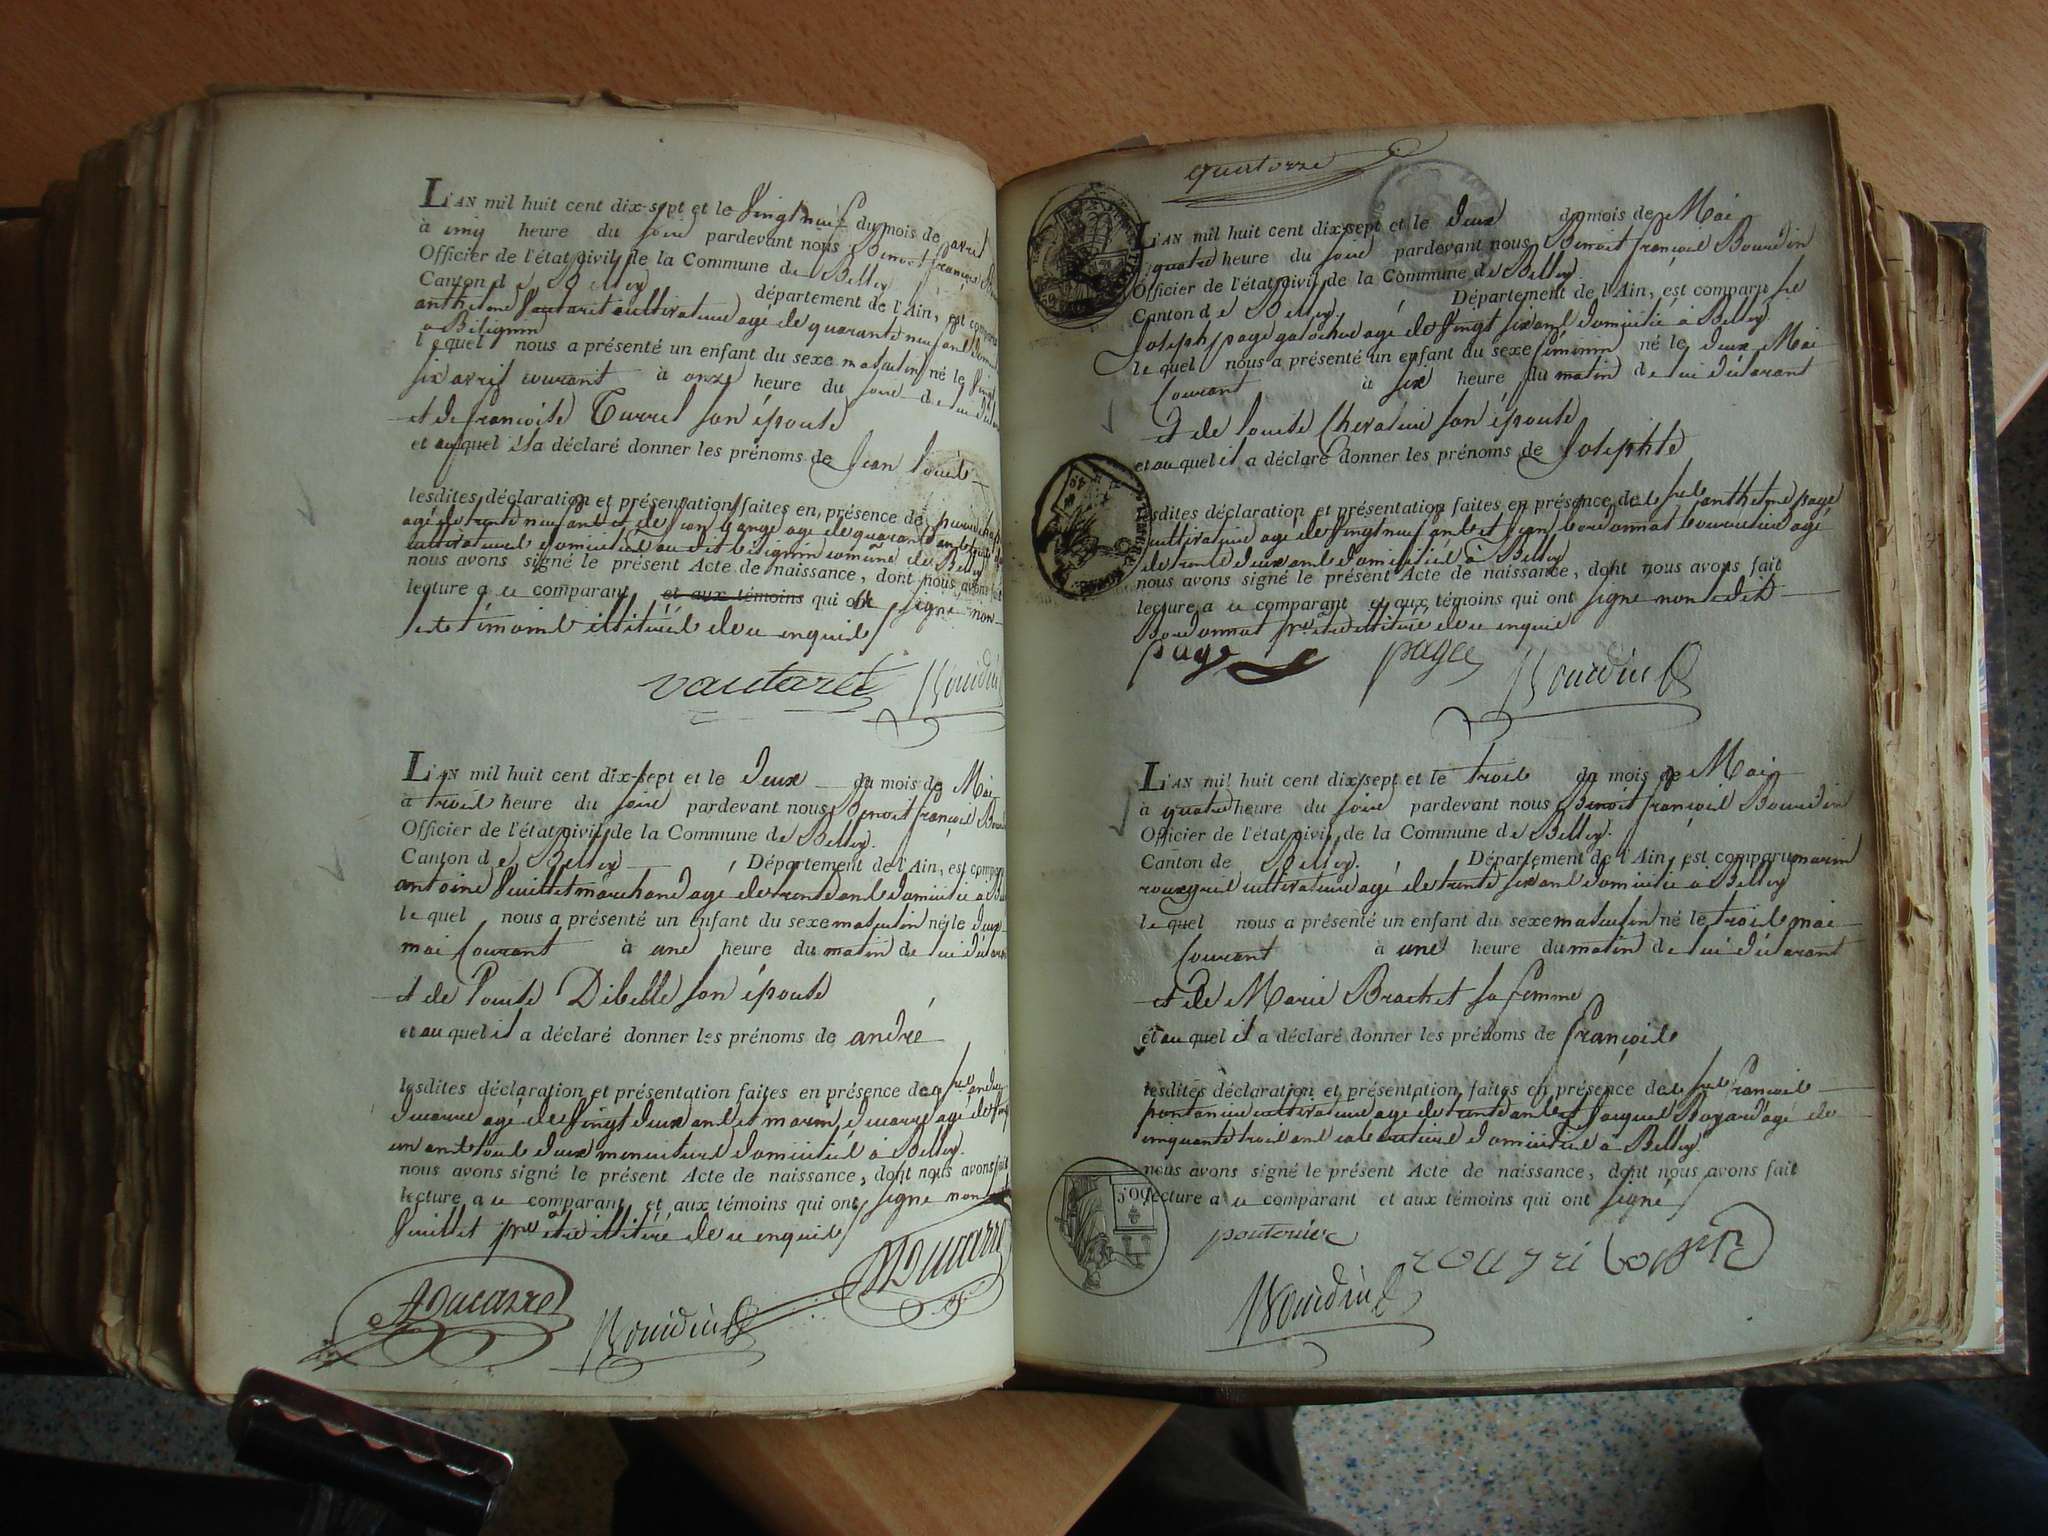 L'AN mil huit cent dix-sept et le vingt neuf du mois de avril
à cinq heure du soir pardevant nous Benoit françois
Officier de l'état civil de la Commune de Belley
Canton de Belley département de l'Ain, est comparu
anthelme Vautaret cultivateur agé de quarante neuf ans
à Bilignin
lequel nous a présenté un enfant du sexe masculin né le vingt
six avril courant à onze heure du soir de lui
et de françoise Turrel son épouse
et auquel il a déclaré donner les prénoms de Jean Louis
lesdites déclaration et présentation faites en présence de
agé de trente neuf ans et de Jean agé de quarante ans
cultivateurs domiciliés au dit bilignin comune de Belley
nous avons signé le présent Acte de naissance, dont nous avons fait
lecture a ce comparant et aux témoins qui ont signé non
les témoins illitérés de ce enquis
vautaret Bourdin
L'AN mil huit cent dix-sept et le deux du mois de Mai
à trois heure du soir pardevant nous Benoit françois
Officier de l'état civil de la Commune de Belley.
Canton de Belley Département de l'Ain, est comparu
antoine Vuillet marchand agé de trente ans domicilié à
lequel nous a présenté un enfant du sexe masculin né le deux
mai Courant à une heure du matin de lui déclarant
et de Louise Dibelle son épouse
et auquel il a déclaré donner les prénoms de andré
lesdites déclaration et présentation faites en présence de
ducarre agé de vingt deux ans et marin ducarre agé de
un ans tous deux domiciliés à Belley.
nous avons signé le présent Acte de naissance, dont nous avons fait
lecture a ce comparant et aux témoins qui ont signé non
Vuillet pour etre illitéré de ce enquis
Ducarre Bourdin Ducarre
quatorze
L'AN mil huit cent dix-sept et le deux du mois de Mai
à quatre heure du soir pardevant nous Benoit françois Bourdin
Officier de l'état civil de la Commune de Belley.
Canton de Belley Département de l'Ain, est comparu le
Joseph page agé de vingt six ans domicilié à Belley
lequel nous a présenté un enfant du sexe féminin né le deux Mai
Courant à six heure du matin de lui déclarant
et de Louise Chevalier son épouse
et auquel il a déclaré donner les prénoms de Josephte
lesdites déclaration et présentation faites en présence de anthelme page
cultivateur agé de vingt neuf ans et Jean bourrelier agé
de trente deux ans domiciliés à Belley
nous avons signé le présent Acte de naissance, dont nous avons fait
lecture a ce comparant et aux témoins qui ont signé non ledit
pour etre illitéré de ce enquis
page page Bourdin
L'AN mil huit cent dix-sept et le trois du mois de Mai
à quatre heure du soir pardevant nous Benoit françois Bourdin
Officier de l'état civil de la Commune de Belley.
Canton de Belley. Département de l'Ain, est comparu marin
cultivateur agé de trente six ans domicilié à Belley
lequel nous a présenté un enfant du sexe masculin né le trois mai
Courant à une heure du matin de lui déclarant
et de Marie Brachet sa femme
et auquel il a déclaré donner les prénoms de françois
lesdites déclaration et présentation faites en présence de françois
cultivateur agé de trente ans et Jacques agé de
cinquante trois ans domiciliés à Belley.
nous avons signé le présent Acte de naissance, dont nous avons fait
lecture a ce comparant et aux témoins qui ont signé
Bourdin